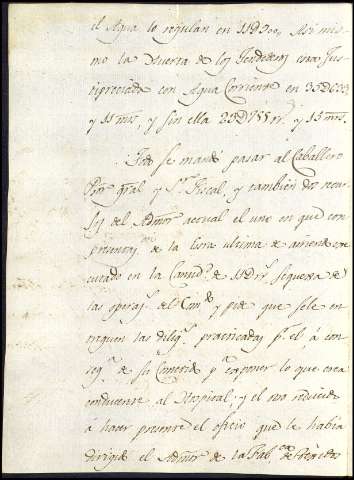 el Agua lo regulan en 11D900. Asi mis-
mo la Huerta de los Tendederos
apreciada con Agua Corriente en 35D603
y 11 mrs, y sin ella 23D755 rr. y 15 mrs.
Todo se mandó pasar al Caballero
Pror. gral y Sr. Fiscal, y tambien dos recur-
sos del Admor actual el uno en que con
presentazon. de la Escra ultima de arriendo exe-
cutado en la Cantd. de 11D rr. se queda de
las operazs. del y pide que se le en-
treguen las diligs. practicadas pr. el á con-
seqa. de su Comision pa. exponer lo que crea
conducente al Hospital; y el otro reducido
á hacer presente el oficio que le habia
dirigido el Admor de la Rl. Fabca. de